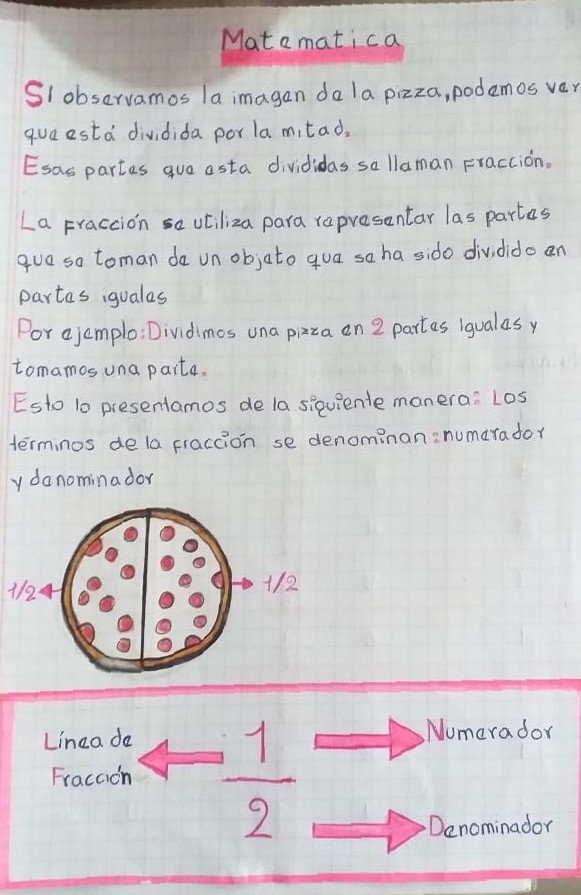 Matematica
Si observamos la imagen de la pizza, podemos ver
que está dividida por la mitad.
Esas partes que esta divididas se llaman Fracción.
La Fracción se utiliza para representar las partes
que se toman de un objeto que se ha sido dividido en
partes iguales
Por ejemplo: Dividimos una pizza en 2 partes Iguales y
tomamos una parte.
Esto lo presentamos de la siguiente manera: Los
términos de la fracción se denominan: numerador
y denominador
1/2
1/2
Línea de
Fracción
1
2
Numerador
Denominador